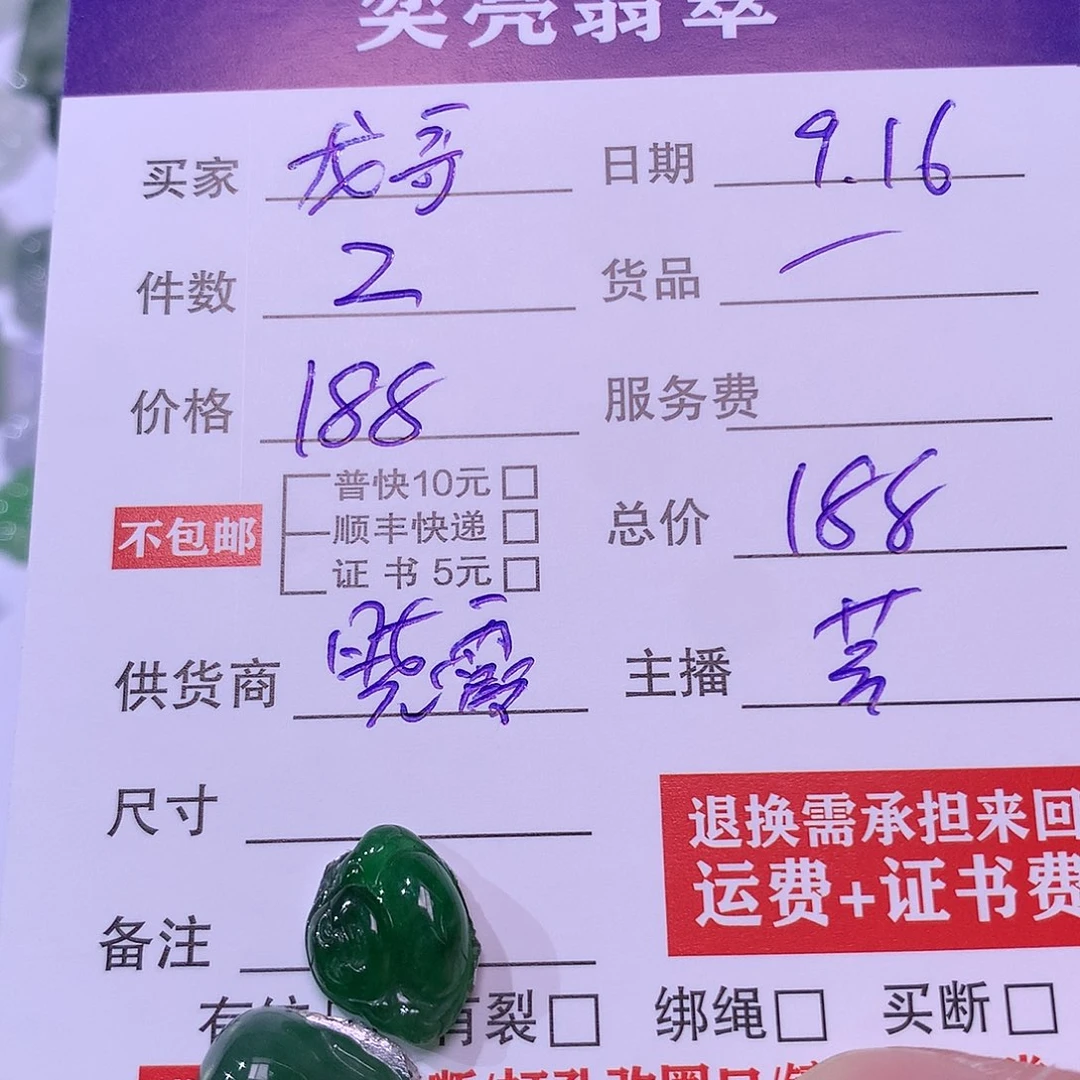 奕亮翡翠
买家 龙哥 日期 9.16
件数 2 货品 一
价格 188 服务费
不包邮
普快10元
顺丰快递
证书 5元
总价 188
供货商 主播
尺寸
退换需承担来回
运费+证书费
备注
有纹 有裂 绑绳 买断